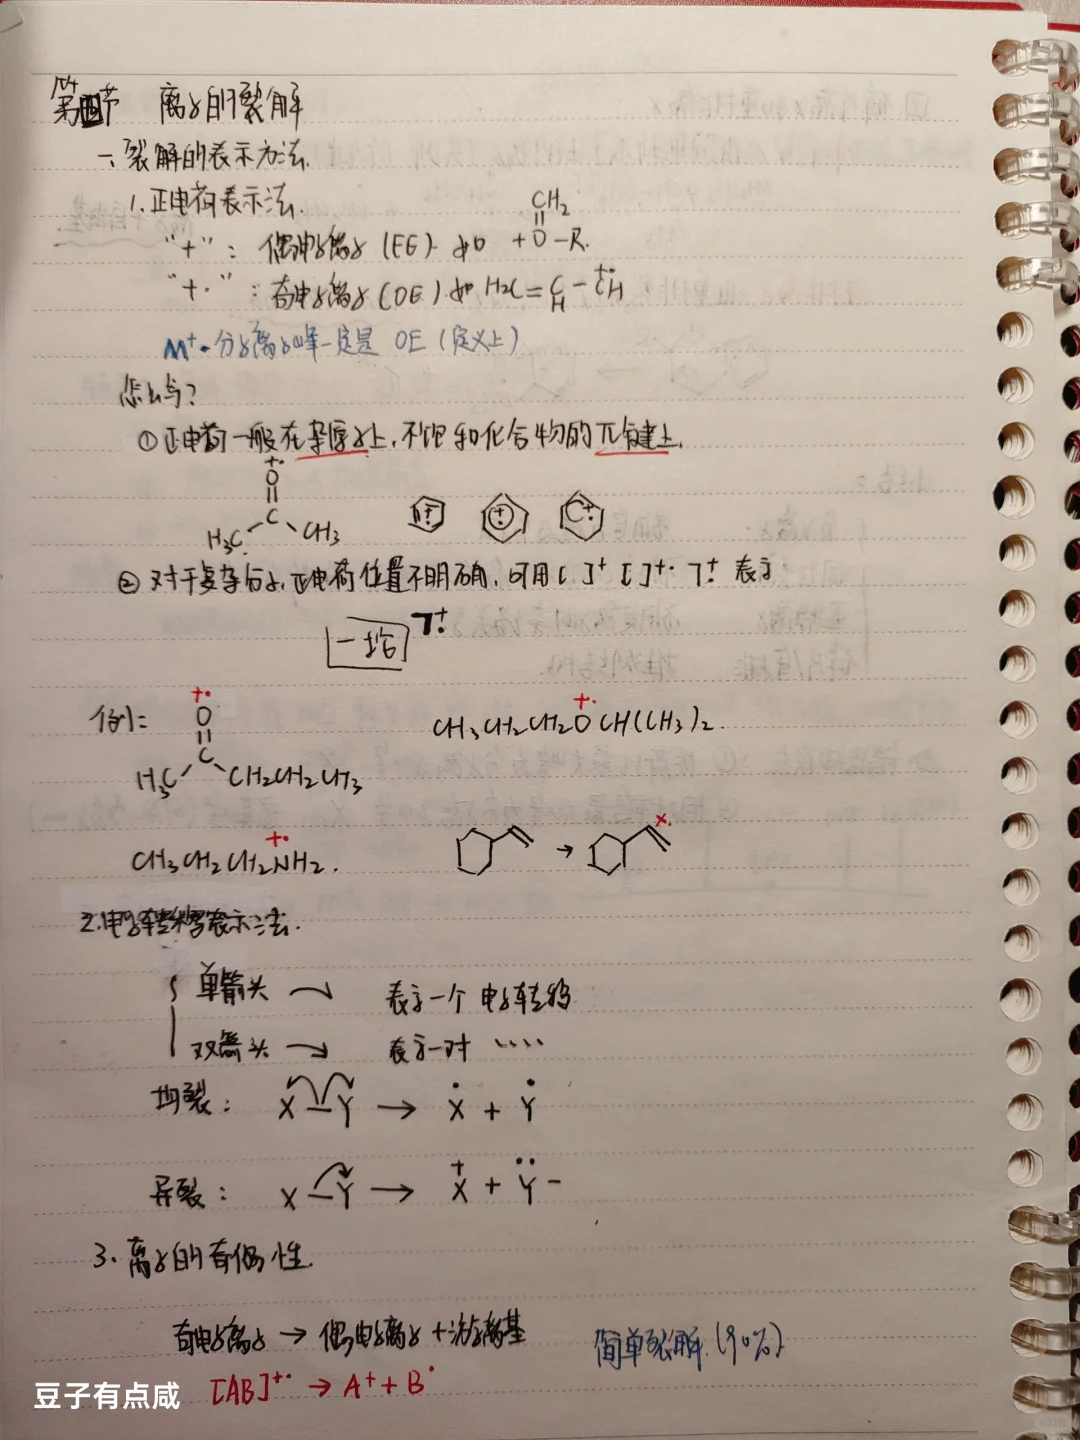 第四节 离子的裂解
一、裂解的表示方法.
1.正电荷表示法.
"+": 偶电子离子 (EE) 如 CH2=O+-R.
"+·": 奇电子离子 (OE) 如 H2C=CH-CH+·
M+·分子离子峰一定是 OE (定义上)
怎么写?
①正电荷一般在杂原子上,不饱和化合物的π键上.
+·
O
H3C C CH3
②对于复杂分子,正电荷位置不明确,可用[ ]+ [ ]+· ㄱ+· 表示
一坨 ㄱ+·
例:
+·
O
H3C C CH2CH2CH3
CH3CH2CH2O+·CH(CH3)2.
CH3CH2CH2N+·H2.
2.电子转移表示法.
单箭头 表示一个 电子转移
双箭头 表示一对 ····
均裂: X—Y → X· + Y·
异裂: X—Y → X+ + Y:−
3.离子的奇偶性.
奇电子离子 → 偶电子离子 + 游离基 简单裂解.(90%)
[AB]+· → A+ + B·
豆子有点咸